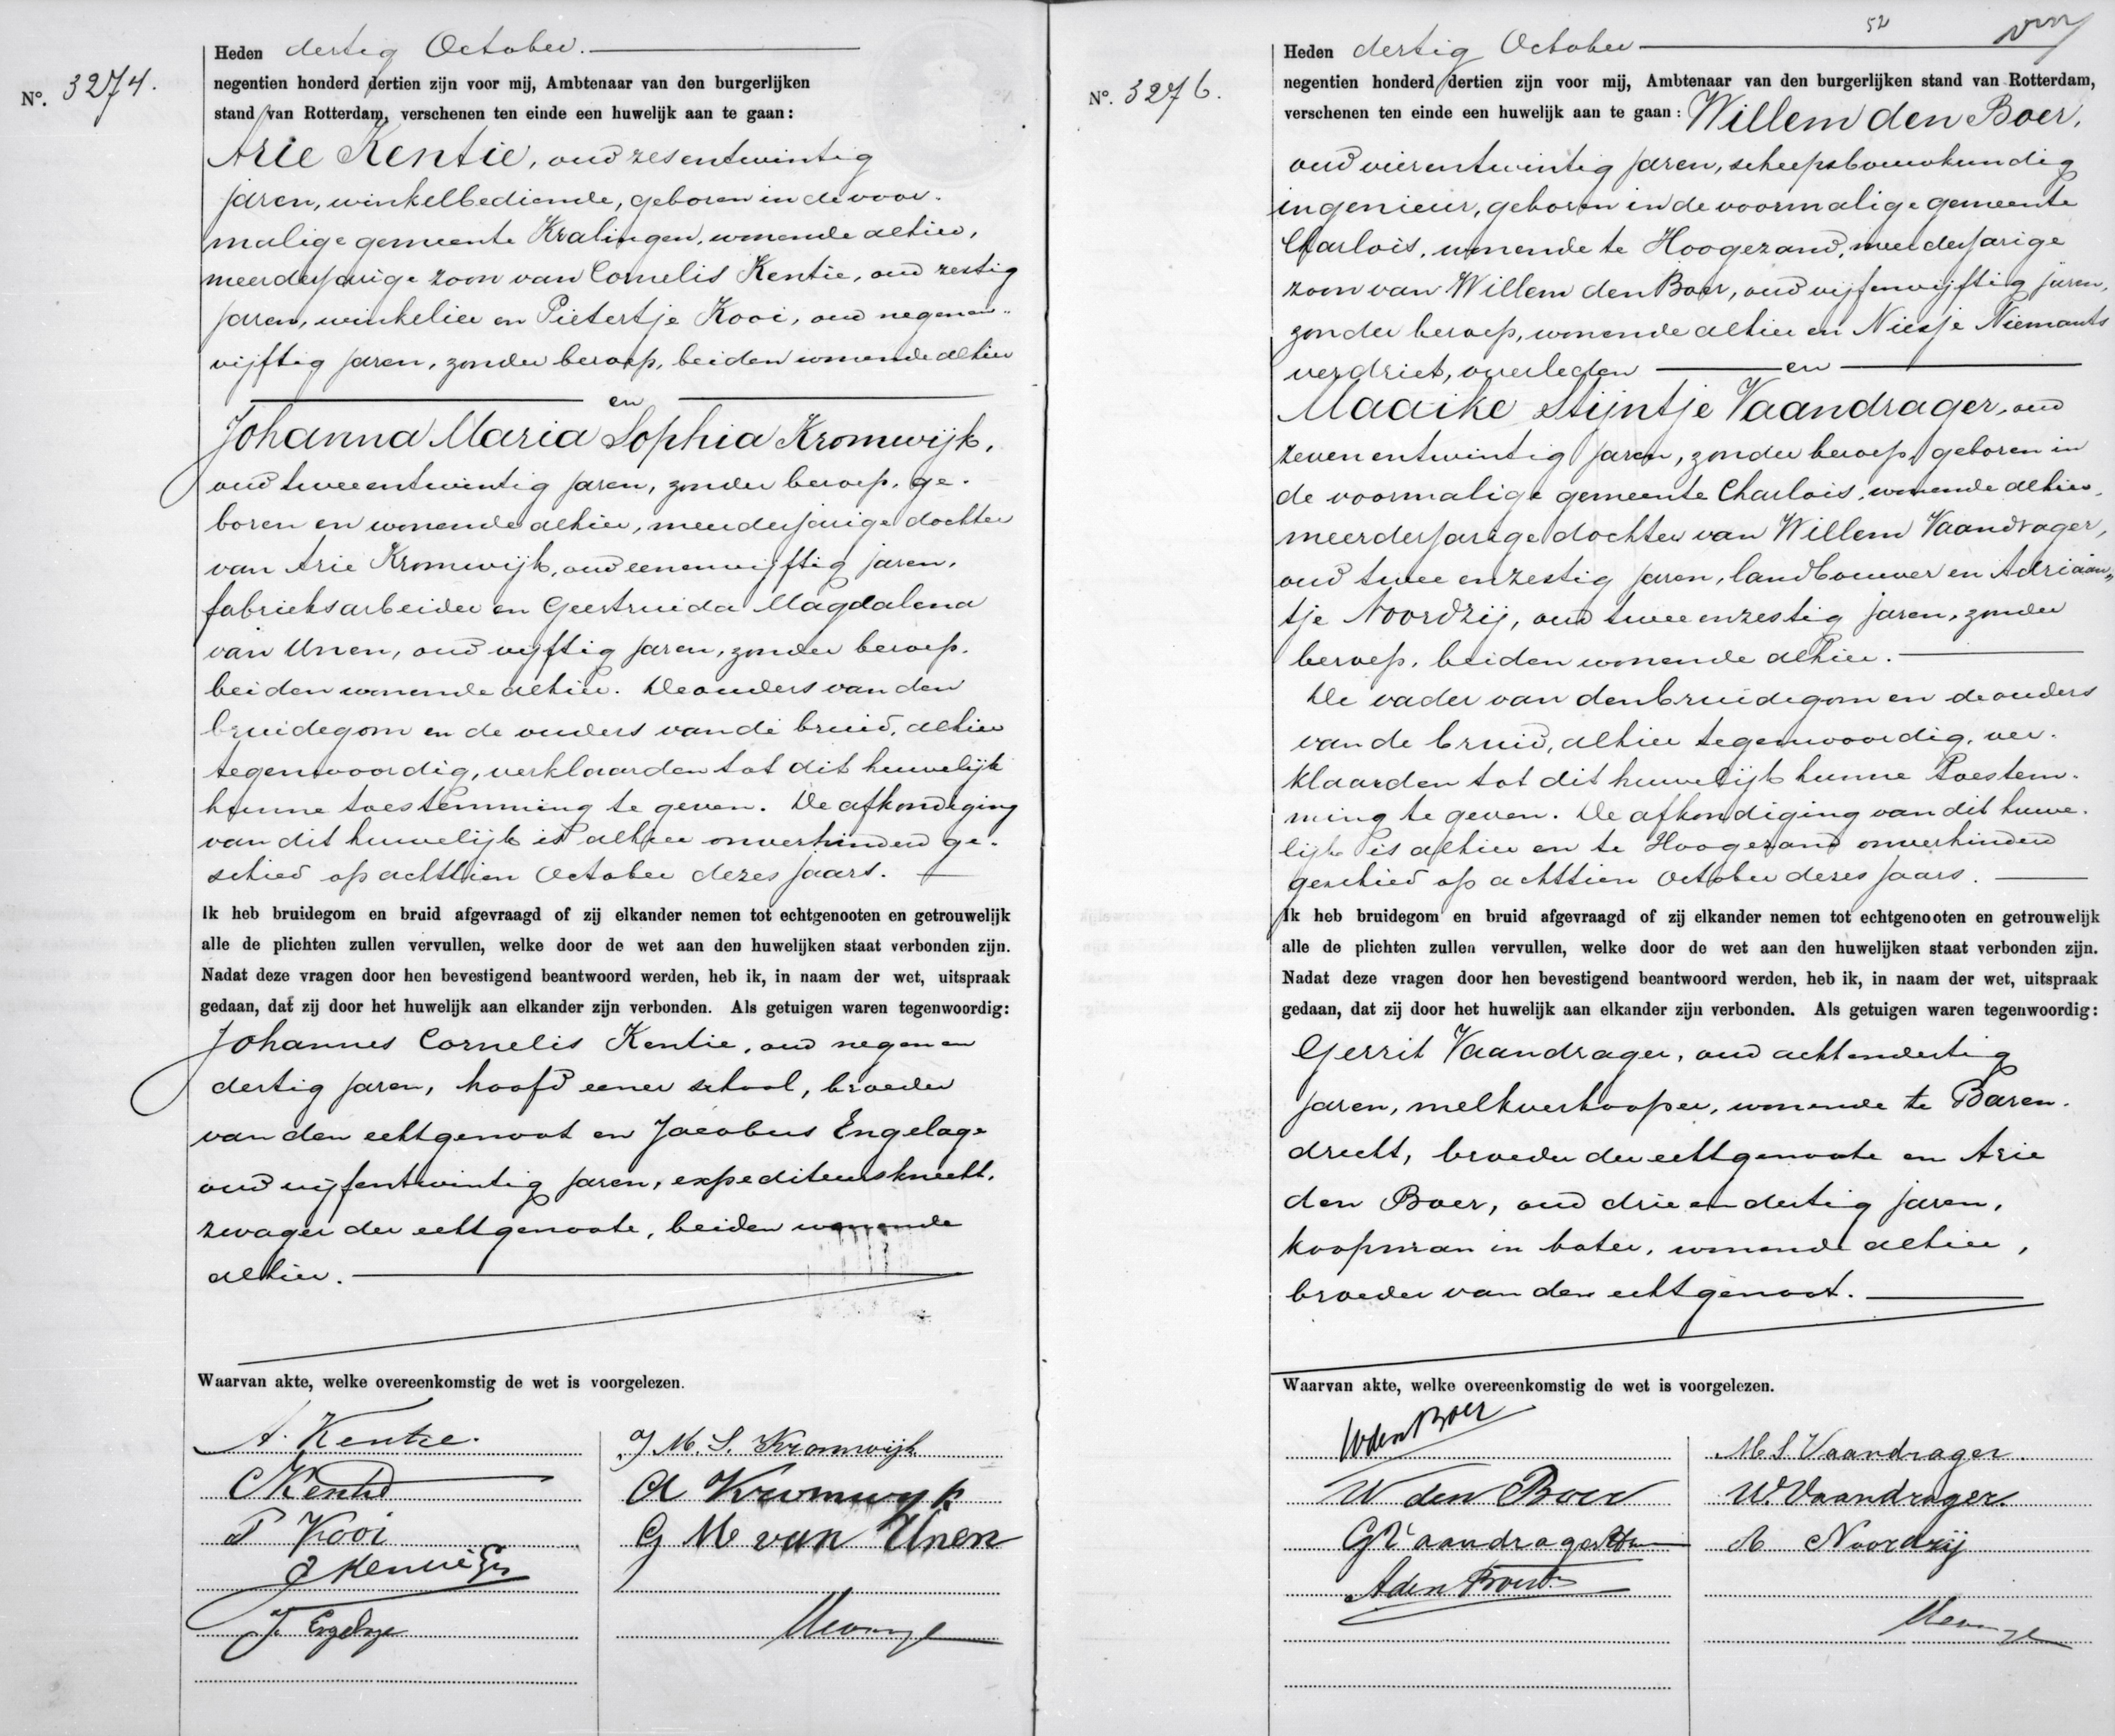 Nº. 3274.
Heden dertig October.
negentien honderd dertien zijn voor mij, Ambtenaar van den burgerlijken
stand van Rotterdam, verschenen ten einde een huwelijk aan te gaan:
Arie Kentie, oud zesentwintig
jaren, winkelbediende, geboren in de voor-
malige gemeente Kralingen, wonende alhier,
meerderjarige zoon van Cornelis Kentie, oud zestig
jaren, winkelier en Pietertje Kooi, oud negenen-
vijftig jaren, zonder beroep, beiden wonende alhier
en
Johanna Maria Sophia Kromwijk,
oud tweeentwintig jaren, zonder beroep, ge-
boren en wonende alhier, meerderjarige dochter
van Arie Kromwijk, oud eenenvijftig jaren,
fabrieksarbeider en Geertruida Magdalena
van Unen, oud vijftig jaren, zonder beroep,
beiden wonende alhier. De ouders van den
bruidegom en de ouders van de bruid, alhier
tegenwoordig, verklaarden tot dit huwelijk
hunne toestemming te geven. De afkondiging
van dit huwelijk is alhier onverhinderd ge-
schied op achttien October dezes jaars.
Ik heb bruidegom en bruid afgevraagd of zij elkander nemen tot echtgenooten en getrouwelijk
alle de plichten zullen vervullen, welke door de wet aan den huwelijken staat verbonden zijn.
Nadat deze vragen door hen bevestigend beantwoord werden, heb ik, in naam der wet, uitspraak
gedaan, dat zij door het huwelijk aan elkander zijn verbonden. Als getuigen waren tegenwoordig:
Johannes Cornelis Kentie, oud negenen
dertig jaren, hoofd eener school, broeder
van den echtgenoot en Jacobus Engelage
oud vijfentwintig jaren, expediteursknecht,
zwager der echtgenoote, beiden wonende
alhier.
Waarvan akte, welke overeenkomstig de wet is voorgelezen.
A. Kentie.
J M. S. Kromwijk
C Kentie
A Kromwyk
P Kooi
G M van Unen
J Kentie
J Engelage
Nº. 3276.
52
Heden dertig October
negentien honderd dertien zijn voor mij, Ambtenaar van den burgerlijken stand van Rotterdam,
verschenen ten einde een huwelijk aan te gaan: Willem den Boer,
oud vierentwintig jaren, scheepsbouwkundig
ingenieur, geboren in de voormalige gemeente
Charlois, wonende te Hoogezand, meerderjarige
zoon van Willem den Boer, oud vijfenvijftig jaren,
zonder beroep, wonende alhier en Niesje Niemants
verdriet, overleden en
Maaike Stijntje Vaandrager, oud
zevenentwintig jaren, zonder beroep, geboren in
de voormalige gemeente Charlois, wonende alhier,
meerderjarige dochter van Willem Vaandrager,
oud twee enzestig jaren, landbouwer en Adriaan„
tje Noordzij, oud twee enzestig jaren, zonder
beroep, beiden wonende alhier.
De vader van den bruidegom en de ouders
van de bruid, alhier tegenwoordig, ver-
klaarden tot dit huwelijk hunne toestem-
ming te geven. De afkondiging van dit huwe-
lijk is alhier en te Hoogezand onverhinderd
geschied op achttien October dezes jaars.
Ik heb bruidegom en bruid afgevraagd of zij elkander nemen tot echtgenooten en getrouwelijk
alle de plichten zullen vervullen, welke door de wet aan den huwelijken staat verbonden zijn.
Nadat deze vragen door hen bevestigend beantwoord werden, heb ik, in naam der wet, uitspraak
gedaan, dat zij door het huwelijk aan elkander zijn verbonden. Als getuigen waren tegenwoordig:
Gerrit Vaandrager, oud achtendertig
jaren, melkverkooper, wonende te Baren-
drecht, broeder der echtgenoote en Arie
den Boer, oud drie en dertig jaren,
koopman in boter, wonende alhier,
broeder van den echtgenoot.
Waarvan akte, welke overeenkomstig de wet is voorgelezen.
W den Boer
M. S. Vaandrager
W den Boer
W. Vaandrager
G Vaandrager
A Noordzij
A den Boer